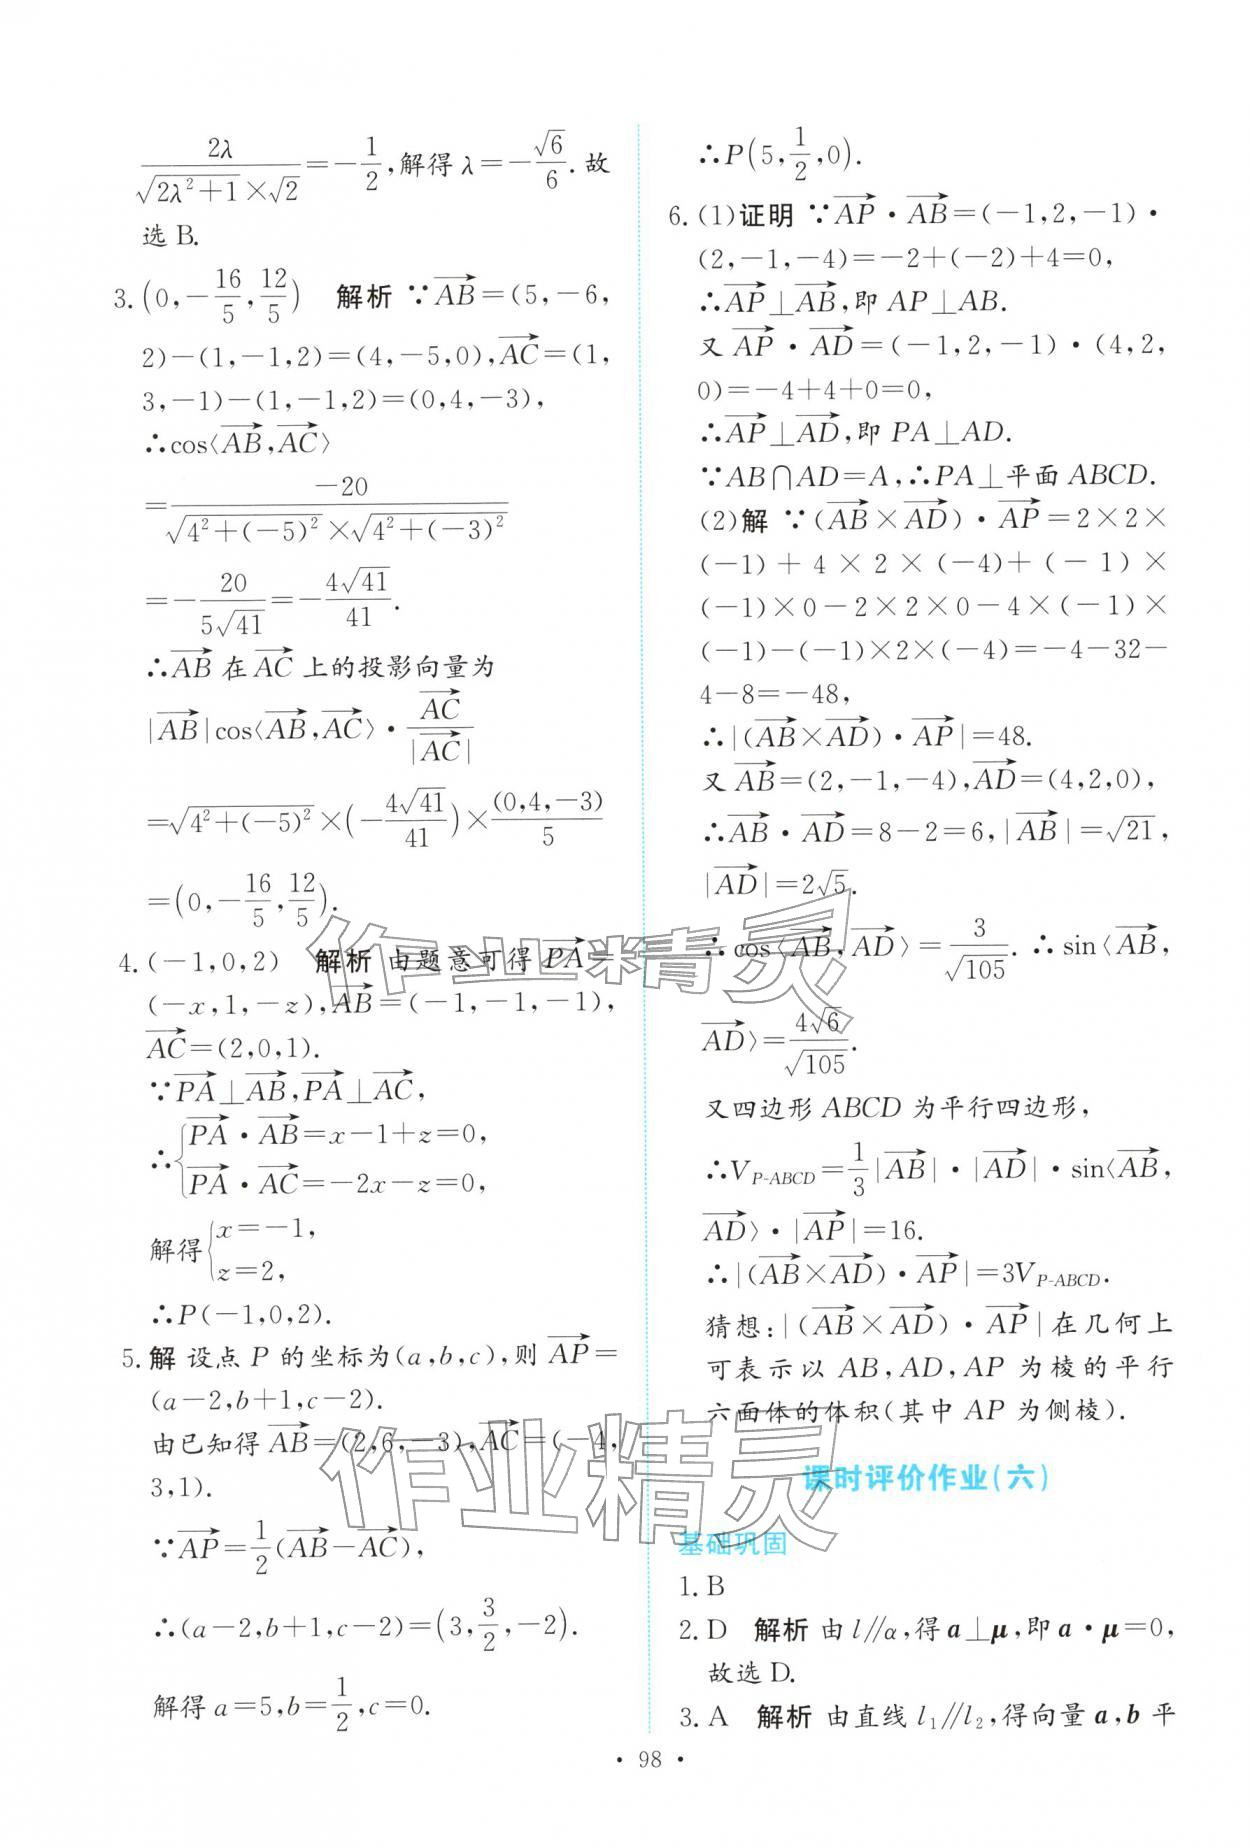 2λ/(√(2λ²+1)×√2)=−1/2,解得 λ=−√6/6.故
选 B.
3.(0,−16/5,12/5) 解析 ∵AB→=(5,−6,
2)−(1,−1,2)=(4,−5,0),AC→=(1,
3,−1)−(1,−1,2)=(0,4,−3),
∴cos⟨AB→,AC→⟩
=−20/(√(4²+(−5)²)×√(4²+(−3)²))
=−20/(5√41)=−4√41/41.
∴AB→在AC→上的投影向量为
|AB→|cos⟨AB→,AC→⟩·AC→/|AC→|
=√(4²+(−5)²)×(−4√41/41)×(0,4,−3)/5
=(0,−16/5,12/5).
4.(−1,0,2) 解析 由题意可得PA→=
(−x,1,−z),AB→=(−1,−1,−1),
AC→=(2,0,1).
∵PA→⊥AB→,PA→⊥AC→,
∴{PA→·AB→=x−1+z=0,
PA→·AC→=−2x−z=0,
解得{x=−1,
z=2,
∴P(−1,0,2).
5.解 设点 P 的坐标为(a,b,c),则AP→=
(a−2,b+1,c−2).
由已知得AB→=(2,6,−3),AC→=(−4,
3,1).
∵AP→=1/2(AB→−AC→),
∴(a−2,b+1,c−2)=(3,3/2,−2).
解得 a=5,b=1/2,c=0.
∴P(5,1/2,0).
6.(1)证明 ∵AP→·AB→=(−1,2,−1)·
(2,−1,−4)=−2+(−2)+4=0,
∴AP→⊥AB→,即 AP⊥AB.
又AP→·AD→=(−1,2,−1)·(4,2,
0)=−4+4+0=0,
∴AP→⊥AD→,即 PA⊥AD.
∵AB∩AD=A,∴PA⊥平面 ABCD.
(2)解 ∵(AB→×AD→)·AP→=2×2×
(−1)+4×2×(−4)+(−1)×
(−1)×0−2×2×0−4×(−1)×
(−1)−(−1)×2×(−4)=−4−32−
4−8=−48,
∴|(AB→×AD→)·AP→|=48.
又AB→=(2,−1,−4),AD→=(4,2,0),
∴AB→·AD→=8−2=6,|AB→|=√21,
|AD→|=2√5.
∴cos⟨AB→,AD→⟩=3/√105.∴sin⟨AB→,
AD→⟩=4√6/√105.
又四边形 ABCD 为平行四边形,
∴V_{P-ABCD}=1/3|AB→|·|AD→|·sin⟨AB→,
AD→⟩·|AP→|=16.
∴|(AB→×AD→)·AP→|=3V_{P-ABCD}.
猜想:|(AB→×AD→)·AP→|在几何上
可表示以 AB,AD,AP 为棱的平行
六面体的体积(其中 AP 为侧棱).
课时评价作业(六)
基础巩固
1.B
2.D 解析 由 l∥α,得 a⊥μ,即 a·μ=0,
故选 D.
3.A 解析 由直线 l₁∥l₂,得向量 a,b 平
·98·
作业精灵
作业精灵